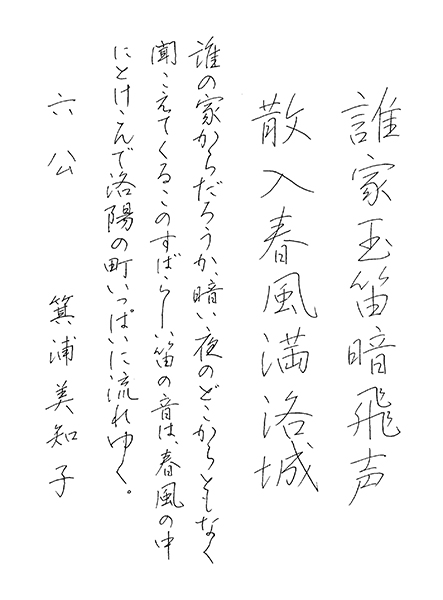 誰家玉笛暗飛声
散入春風満洛城
誰の家からだろうか、暗い夜のどこからともなく
聞こえてくるこのすばらしい笛の音は、春風の中
にとけこんで洛陽の町いっぱいに流れゆく。
六公 箕浦美知子